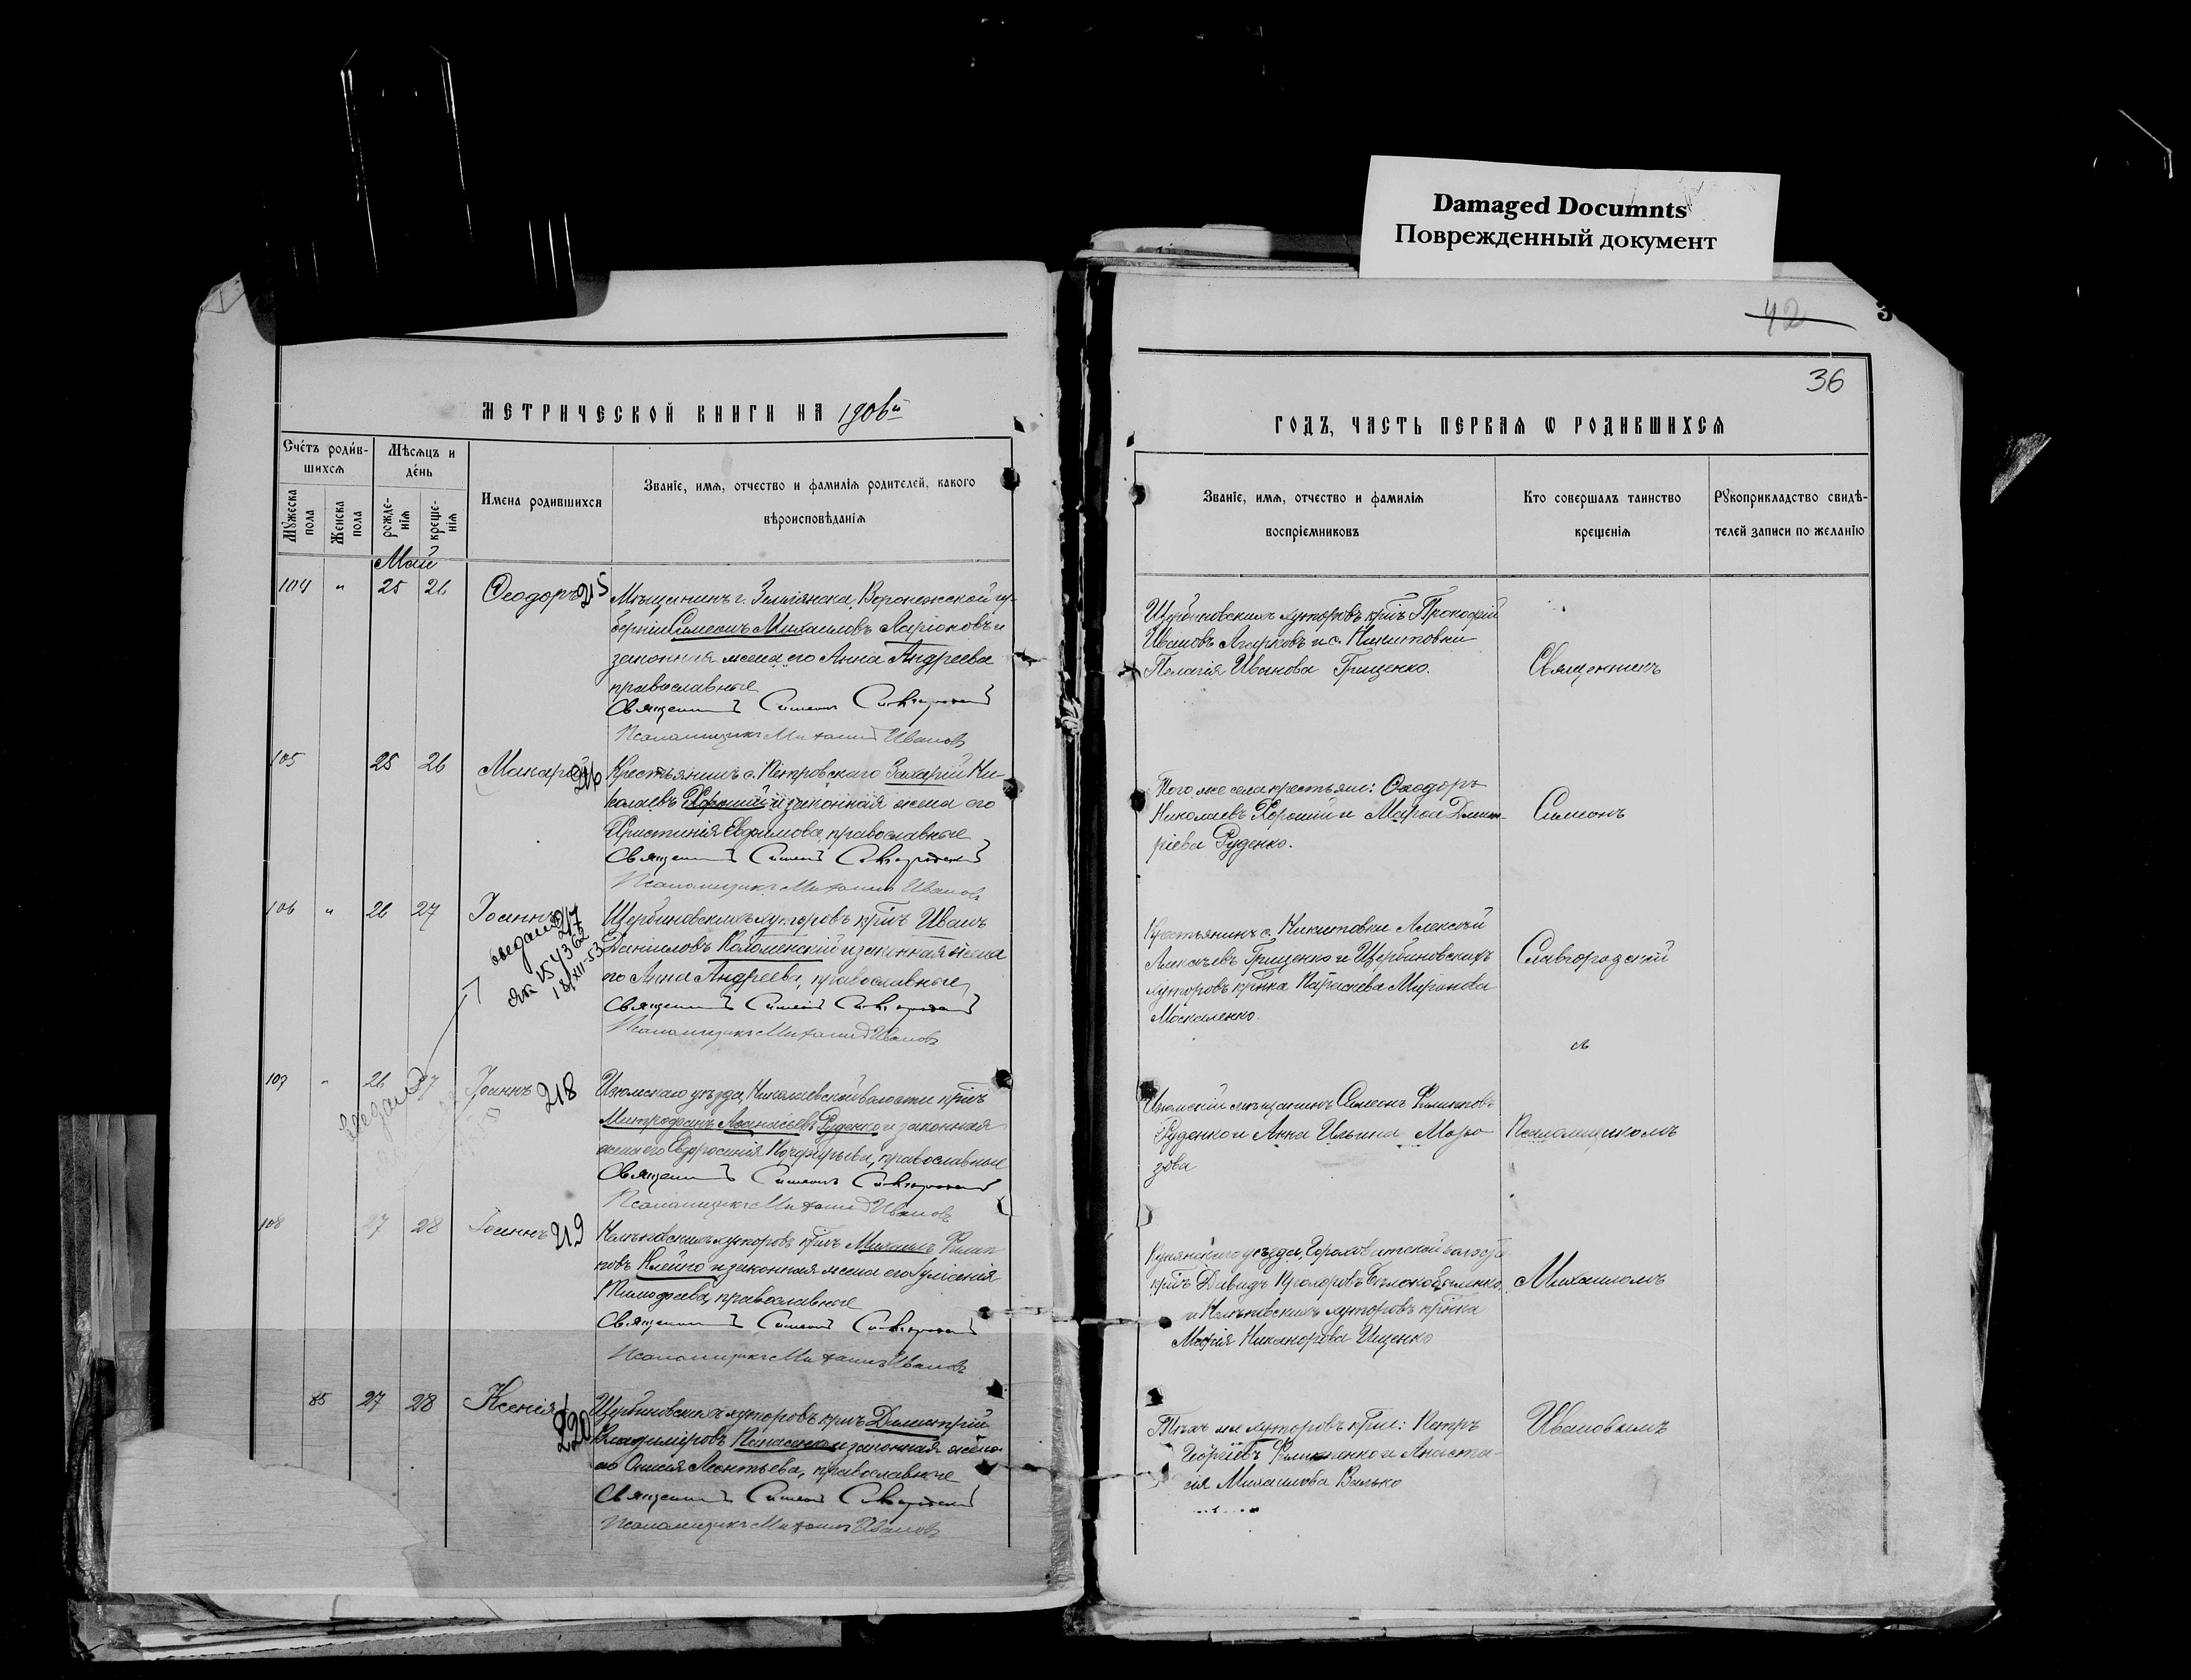 Damaged Documnts
Поврежденный документ
42
36
МЕТРИЧЕСКОЙ КНИГИ НА 1906й
Счетъ родив-
шихся
Мѣсяцъ и
день
Мужеска пола
Женска пола
рожде-
нія
креще-
нія
Имена родившихся
Званіе, имя, отчество и фамилія родителей, какого
вѣроисповѣданія
Май
104 " 25 26 Ѳеодоръ 215 Мѣщанинъ г. Землянска, Воронежской гу-
берніи Симеонъ Михаиловъ Ларіоновъ и
законная жена его Анна Андреева
православные
Священникъ Симеонъ Славгородскій
Псаломщикъ Михаилъ Ивановъ
105 25 26 Макарій 216 Крестьянинъ с. Петровскаго Захарій Ни-
колаевъ Хорошій и законная жена его
Христинія Евфимова, православные
Священникъ Симеонъ Славгородскій
Псаломщикъ Михаилъ Ивановъ
106 " 26 27 Іоаннъ 217 Щербиновскихъ хуторовъ кр҃нъ Иванъ
Даніиловъ Коломенскій и законная жена
его Анна Андреева, православные
Священникъ Симеонъ Славгородскій
Псаломщикъ Михаилъ Ивановъ
18/XII-53
107 " 26 27 Іоаннъ 218 Изюмскаго уѣзда, Николаевской волости кр҃нъ
Митрофанъ Аѳанасьевъ Руденко и законная
жена его Евфросинія Порфирьева, православные
Священникъ Симеонъ Славгородскій
Псаломщикъ Михаилъ Ивановъ
108 27 28 Іоаннъ 219 хуторовъ кр҃нъ Михаилъ Филип-
повъ Клейно и законная жена его Іуліанія
Тимоѳеева, православные
Священникъ Симеонъ Славгородскій
Псаломщикъ Михаилъ Ивановъ
85 27 28 Ксенія 220 Щербиновскихъ хуторовъ кр҃нъ Димитрій
Владиміровъ Панасенко и законная жена
его Леонтьева, православные
Священникъ Симеонъ Славгородскій
Псаломщикъ Михаилъ Ивановъ
ГОДЪ, ЧАСТЬ ПЕРВАЯ Ѡ РОДИВШИХСЯ
Званіе, имя, отчество и фамилія
воспріемниковъ
Кто совершалъ таинство
крещенія
Рукоприкладство свидѣ-
телей записи по желанію
Щербиновскихъ хуторовъ кр҃нъ Прокофій
Ивановъ Агарковъ и с. Никитовки
Пелагія Иванова Грищенко.
Священникъ
Того же села крестьяне: Ѳеодоръ
Николаевъ Хорошій и Марѳа Димит-
ріева Руденко.
Симеонъ
Крестьянинъ с. Никитовки Алексѣй
Алексѣевъ Грищенко и Щербиновскихъ
хуторовъ кр҃нка Параскева Миронова
Москаленко.
Славгородскій
съ
Изюмскій мѣщанинъ Симеонъ Филипповъ
Руденко и Анна Ильина Моро-
зова
Псаломщикомъ
Купянскаго уѣзда, волости
кр҃нъ Давидъ
и хуторовъ кр҃нка
Марія Никанорова Ищенко
Михаиломъ
Тѣхъ же хуторовъ кр҃не: Петръ
Георгіевъ Филипенко и Анаста-
сія Михаилова Валько
Ивановымъ